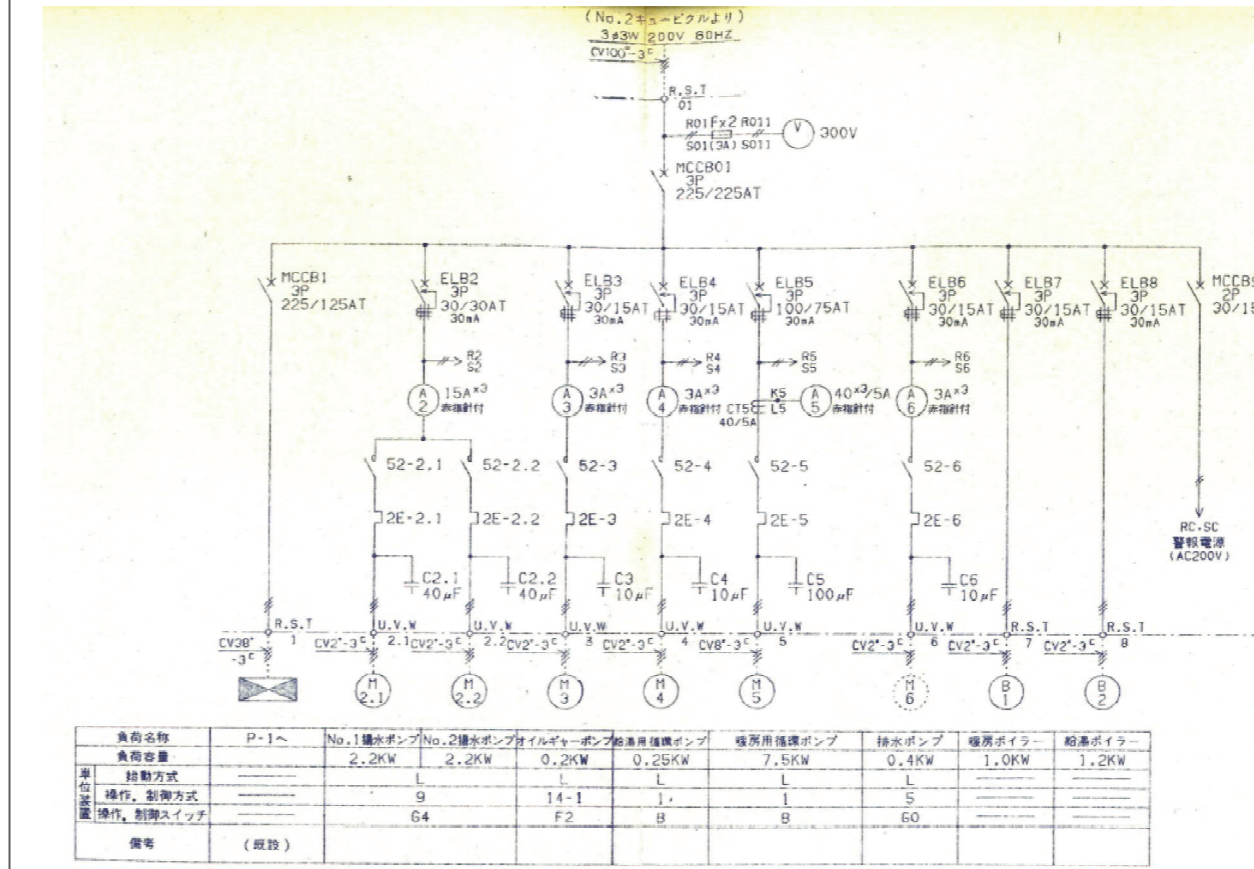 (No.2キュービクルより)
3ø3W 200V 60HZ
CV100°-3ᶜ
R.S.T
01
R01 F×2 R011
S01 (3A) S011
V
300V
MCCB01
3P
225/225AT
MCCB1
3P
225/125AT
ELB2
3P
30/30AT
30mA
ELB3
3P
30/15AT
30mA
ELB4
3P
30/15AT
30mA
ELB5
3P
100/75AT
30mA
ELB6
3P
30/15AT
30mA
ELB7
3P
30/15AT
30mA
ELB8
3P
30/15AT
30mA
2P
R2
S2
R3
S3
R4
S4
R5
S5
R6
S6
A
2
15A×3
赤指針付
A
3
3A×3
赤指針付
A
4
3A×3
赤指針付
CT5
40/5A
K5
L5
A
5
40×3/5A
赤指針付
A
6
3A×3
赤指針付
52-2.1 52-2.2 52-3 52-4 52-5 52-6
2E-2.1 2E-2.2 2E-3 2E-4 2E-5 2E-6
RC.SC
警報電源
(AC200V)
C2.1
40μF
C2.2
40μF
C3
10μF
C4
10μF
C5
100μF
C6
10μF
R.S.T U.V.W U.V.W U.V.W U.V.W U.V.W U.V.W R.S.T R.S.T
1 2.1 2.2 3 4 5 6 7 8
CV38°
-3ᶜ
CV2°-3ᶜ CV2°-3ᶜ CV2°-3ᶜ CV2°-3ᶜ CV8°-3ᶜ CV2°-3ᶜ CV2°-3ᶜ CV2°-3ᶜ
M
2.1
M
2.2
M
3
M
4
M
5
M
6
B
1
B
2
負荷名称 P-1へ No.1揚水ポンプ No.2揚水ポンプ オイルギャーポンプ 給湯用循環ポンプ 暖房用循環ポンプ 排水ポンプ 暖房ボイラー 給湯ボイラー
負荷容量 2.2KW 2.2KW 0.2KW 0.25KW 7.5KW 0.4KW 1.0KW 1.2KW
単位装置
始動方式 L L L L L
操作, 制御方式 9 14-1 1 1 5
操作, 制御スイッチ G4 F2 B B G0
備考 (既設)